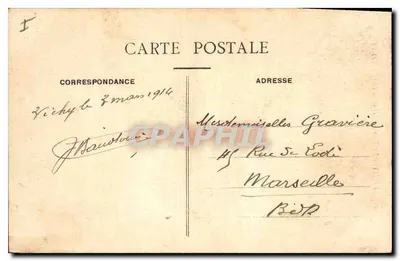 I
CARTE POSTALE
CORRESPONDANCE
Vichy le 3 mars 1914
ADRESSE
Mesdemoiselles Gravière
45 Rue de Lodi
Marseille
B d R
CPAPHIL